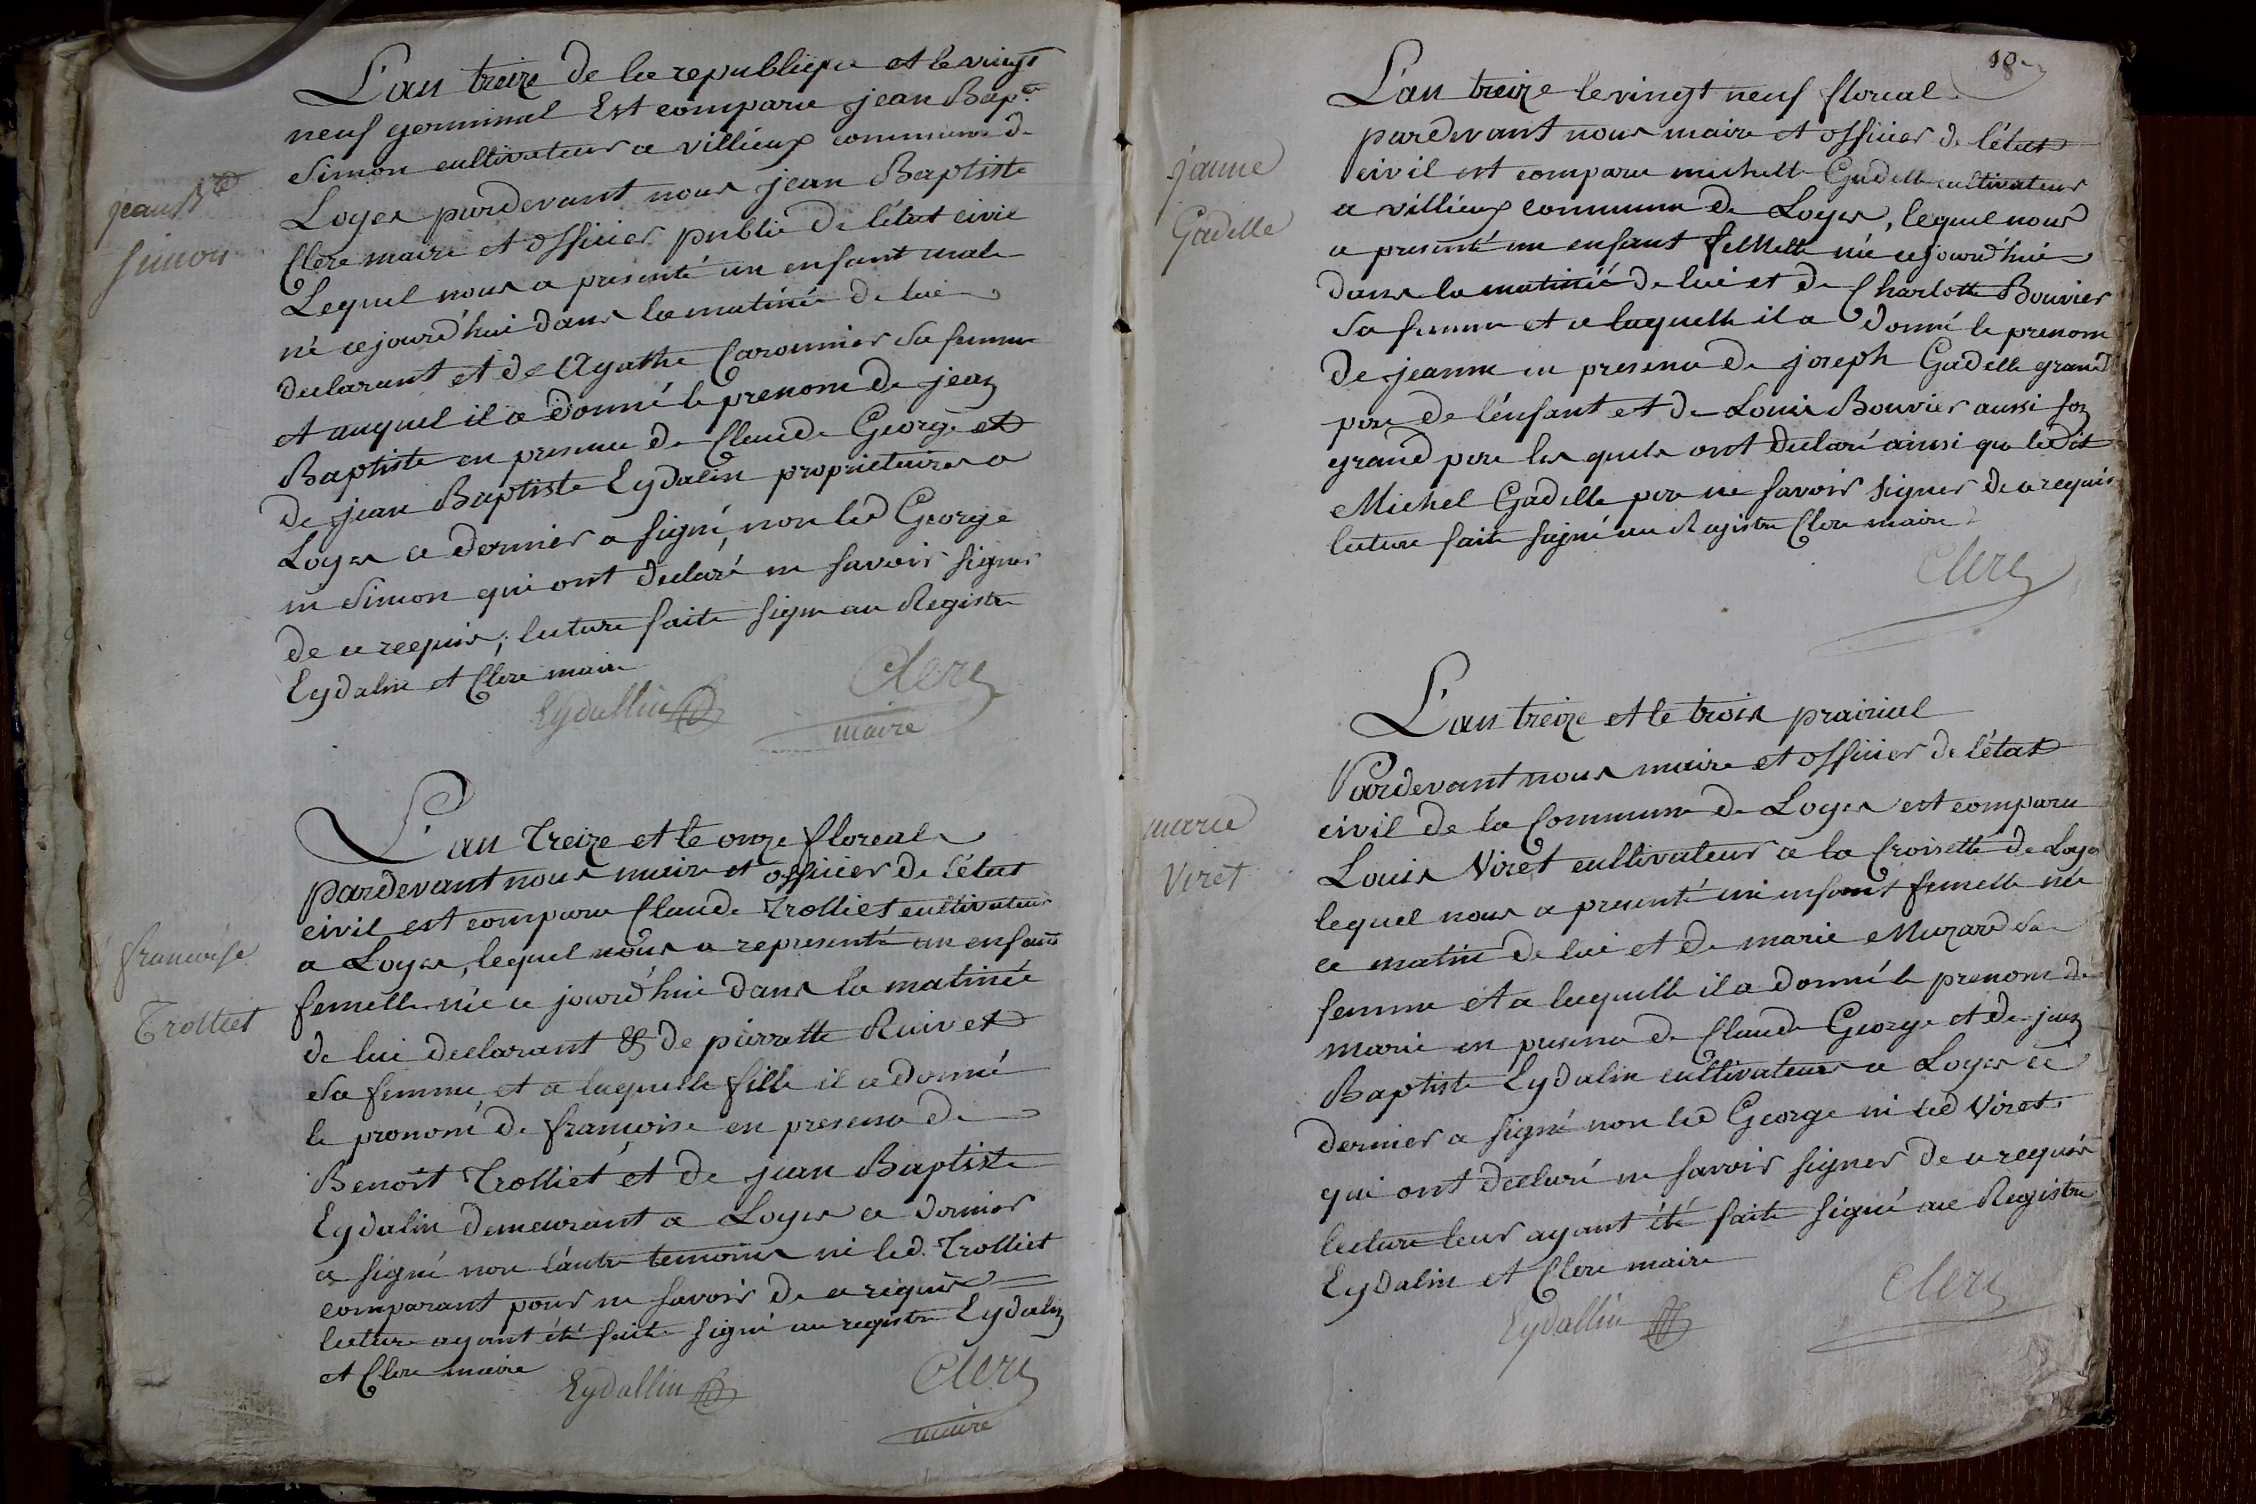 jean Bte
simon
L'an treize de la republique et le vingt
neuf germinal Est comparu jean Bapte
Simon cultivateur a villieux commune de
Loyes pardevant nous jean Baptiste
Clerc maire et officier public de l'état civil
Lequel nous a presenté un enfant male
né cejourd'hui dans la matinée de lui
declarant et de Agathe Caronnier sa femme
et auquel il a donné le prenom de jean
Baptiste en presence de Claude George et
de jean Baptiste Eydalin proprietaires a
Loyes ce dernier a signé, non led George
ni Simon qui ont declaré ne savoir signer
de ce requis; lecture faite signe au Registre
Eydalin et Clerc maire
Eydallin
Clerc
maire
francoise
Trolliet
L'an Treize et le onze floreal
pardevant nous maire et officier de l'état
civil est comparu Claude Trolliet cultivateur
a Loyes, lequel nous a representé un enfant
femelle née ce jourd'hui dans la matinée
de lui declarant & de pierrette Ruivet
sa femme, et a laquelle fille il a donné
le pronom de francoise en presence de
Benoit Trolliet et de jean Baptiste
Eydalin demeurant a Loyes ce dernier
a signé non l'autre temoins ni led. Trolliet
comparant pour ne savoir de ce requis
lecture ayant été faite signé au registre Eydalin
et Clerc maire
Eydallin
Clerc
maire
10
jeanne
Gadelle
L'an treize le vingt neuf floreal
pardevant nous maire et officier de l'état
civil est comparu michelle Gadelle cultivateur
a villieux commune de Loyes, lequel nous
a presenté un enfant femelle née cejourd'hui
dans la matinée de lui et de Charlotte Bouvier
sa femme et a laquelle il a donné le prenom
de jeanne en presence de joseph Gadelle grand
pere de l'enfant et de Louis Bouvier aussi son
grand pere les quels ont declaré ainsi que ledit
Michel Gadelle pere ne savoir signer de ce requis
lecture faite signé au Registre Clerc maire
Clerc
marie
Viret
L'an treize et le trois prairial
Pardevant nous maire et officier de l'état
civil de la Commune de Loyes est comparu
Louis Viret cultivateur a la Croisette de Loyes
lequel nous a presenté un enfant femelle née
ce matin de lui et de marie Muzard sa
femme et a laquelle il a donné le prenom de
marie en presence de Claude George et de jean
Baptiste Eydalin cultivateurs a Loyes ce
dernier a signé non led George ni led Viret
qui ont declaré ne savoir signer de ce requis
lecture leur ayant été faite signé au Registre
Eydalin et Clerc maire
Eydallin
Clerc